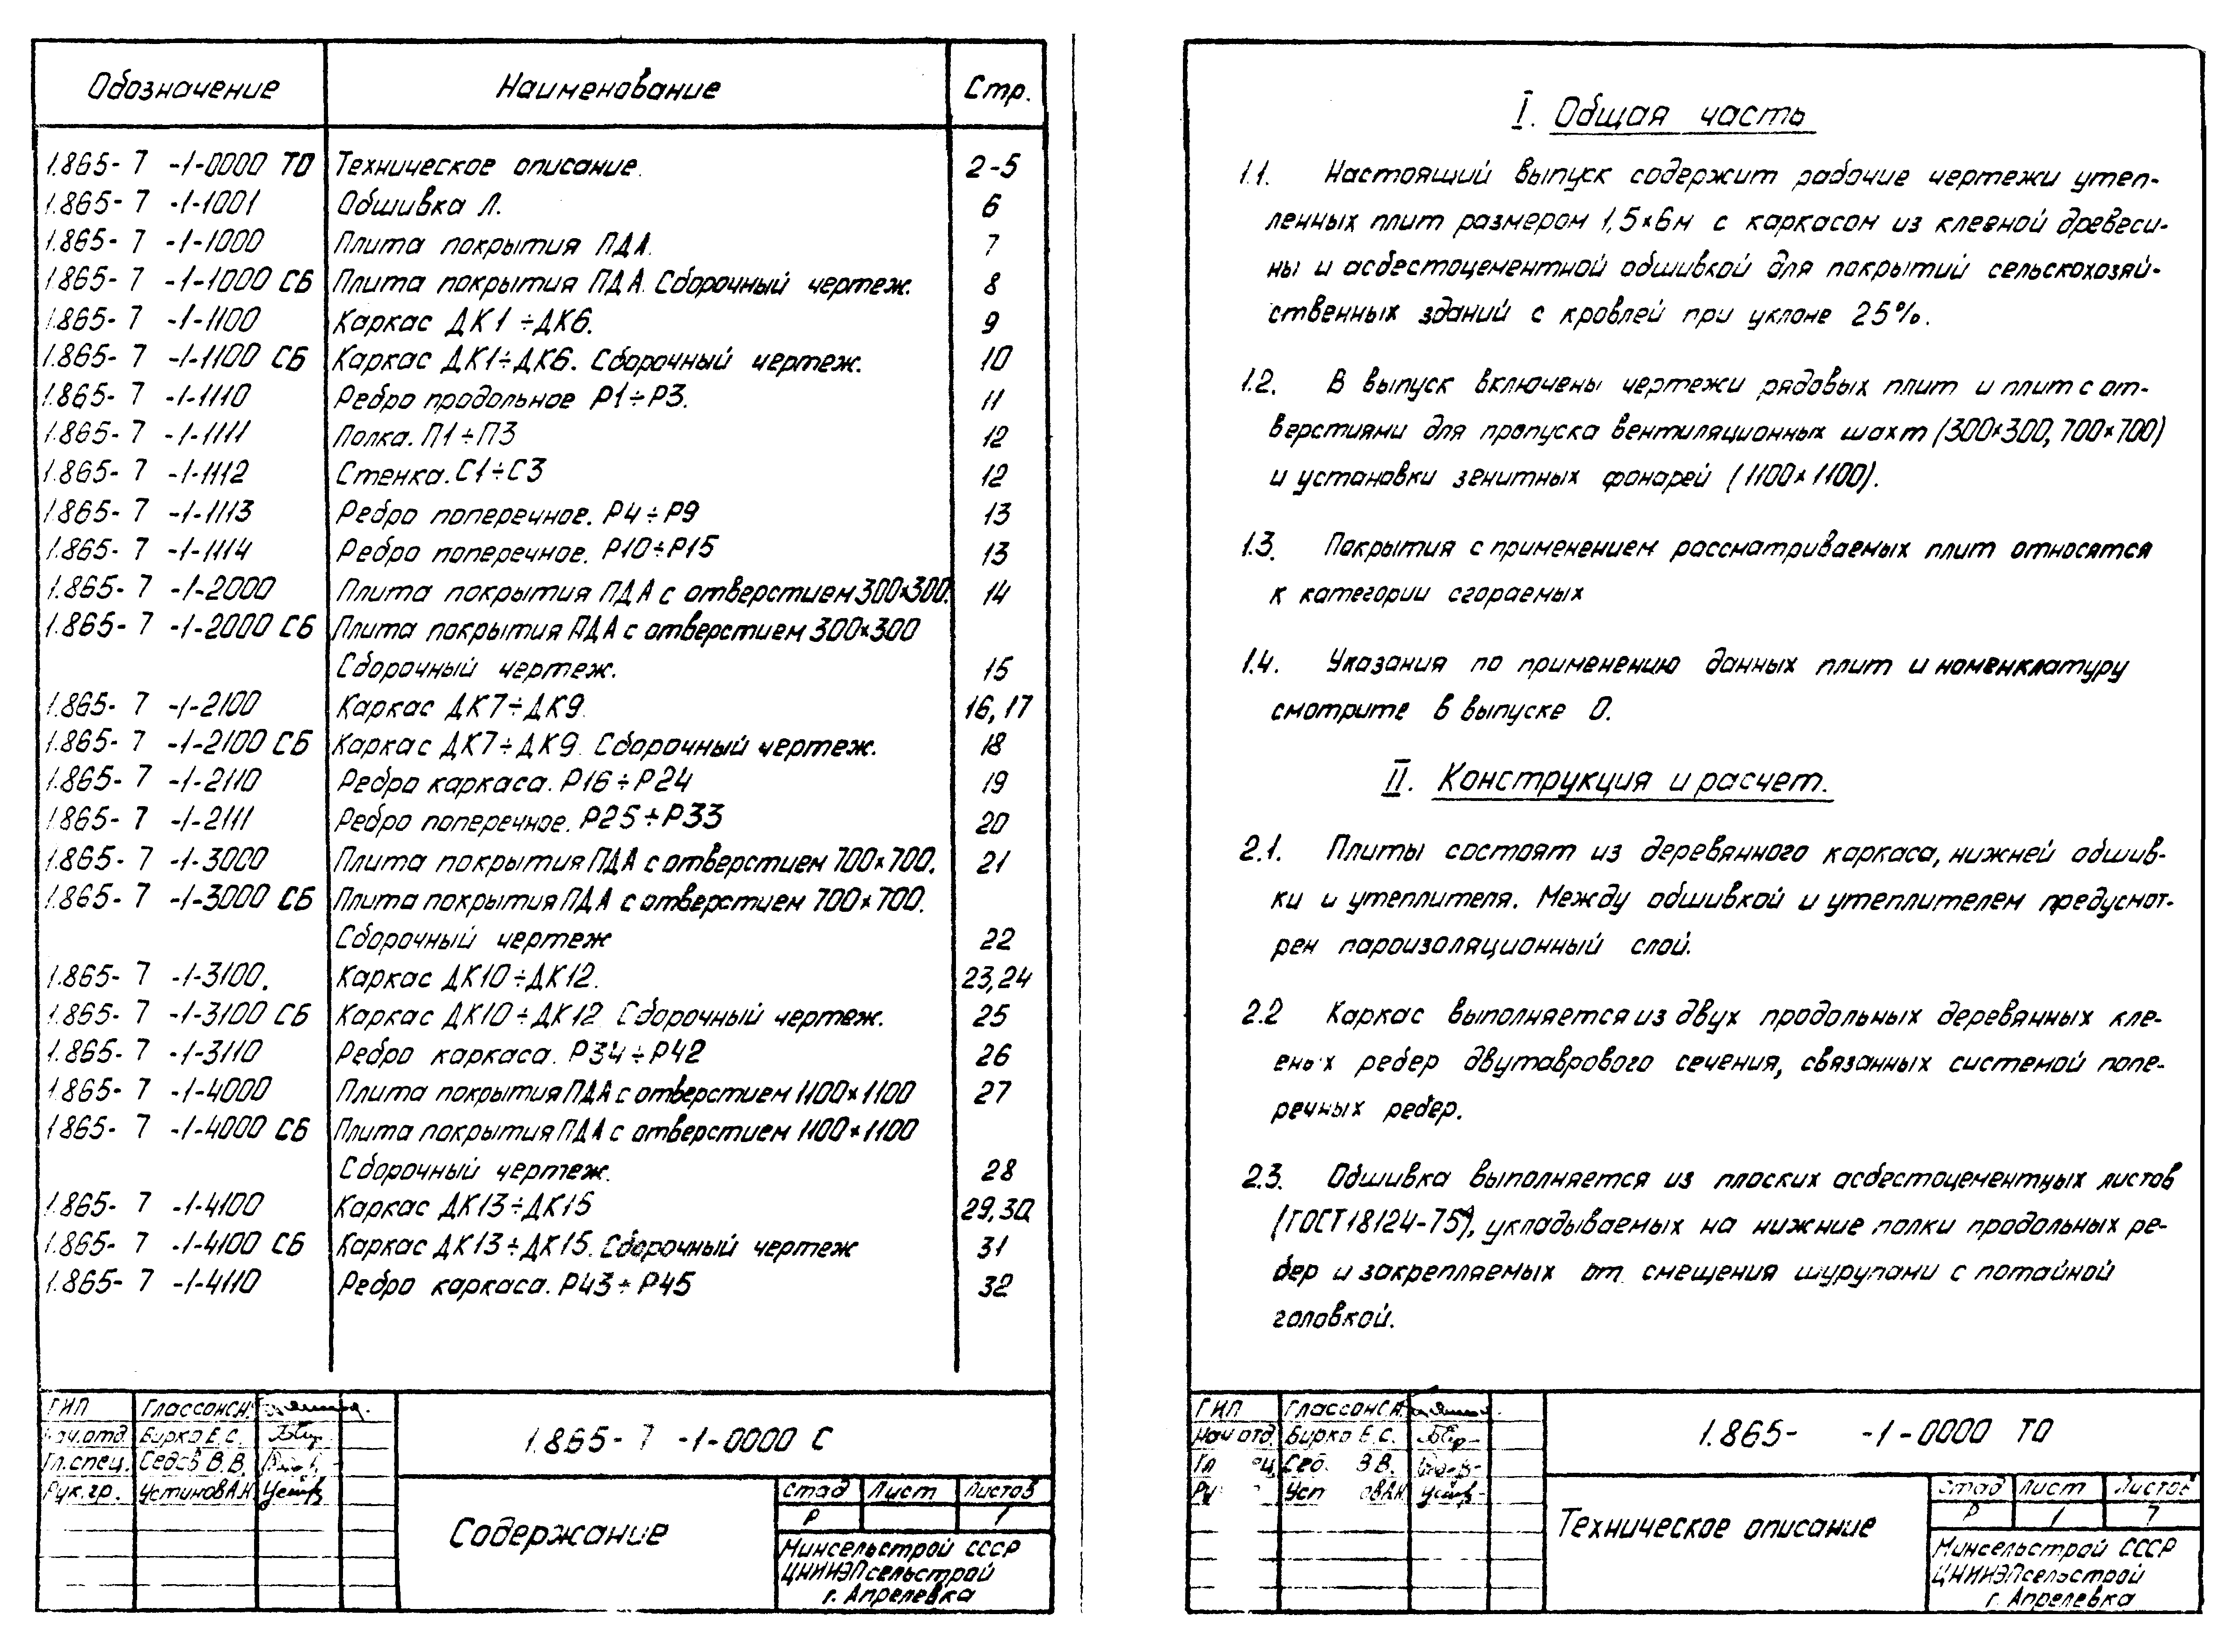 Обозначение Наименование Стр.
1.865- 7 -1-0000 ТО Техническое описание. 2-5
1.865- 7 -1-1001 Обшивка Л. 6
1.865- 7 -1-1000 Плита покрытия ПДА. 7
1.865- 7 -1-1000 СБ Плита покрытия ПДА. Сборочный чертеж. 8
1.865- 7 -1-1100 Каркас ДК1÷ДК6. 9
1.865- 7 -1-1100 СБ Каркас ДК1÷ДК6. Сборочный чертеж. 10
1.865- 7 -1-1110 Ребро продольное Р1÷Р3. 11
1.865- 7 -1-1111 Полка. П1÷П3 12
1.865- 7 -1-1112 Стенка. С1÷С3 12
1.865- 7 -1-1113 Ребро поперечное. Р4÷Р9 13
1.865- 7 -1-1114 Ребро поперечное. Р10÷Р15 13
1.865- 7 -1-2000 Плита покрытия ПДА с отверстием 300×300. 14
1.865- 7 -1-2000 СБ Плита покрытия ПДА с отверстием 300×300
Сборочный чертеж. 15
1.865- 7 -1-2100 Каркас ДК7÷ДК9. 16,17
1.865- 7 -1-2100 СБ Каркас ДК7÷ДК9. Сборочный чертеж. 18
1.865- 7 -1-2110 Ребро каркаса. Р16÷Р24 19
1.865- 7 -1-2111 Ребро поперечное. Р25÷Р33 20
1.865- 7 -1-3000 Плита покрытия ПДА с отверстием 700×700. 21
1.865- 7 -1-3000 СБ Плита покрытия ПДА с отверстием 700×700.
Сборочный чертеж 22
1.865- 7 -1-3100. Каркас ДК10÷ДК12. 23,24
1.865- 7 -1-3100 СБ Каркас ДК10÷ДК12 Сборочный чертеж. 25
1.865- 7 -1-3110 Ребро каркаса. Р34÷Р42 26
1.865- 7 -1-4000 Плита покрытия ПДА с отверстием 1100×1100 27
1865- 7 -1-4000 СБ Плита покрытия ПДА с отверстием 1100×1100
Сборочный чертеж. 28
1.865- 7 -1-4100 Каркас ДК13÷ДК15 29,30
1.865- 7 -1-4100 СБ Каркас ДК13÷ДК15. Сборочный чертеж 31
1.865- 7 -1-4110 Ребро каркаса. Р43÷Р45 32
ГИП Глассонсн.
Нач.отд. Бирко Е.С.
Гл.спец. Седов В.В.
Рук.гр. Устинов А.Н.
1.865- 7 -1-0000 С
Содержание
стад Лист Листов
Р 1
Минсельстрой СССР
ЦНИИЭПсельстрой
г. Апрелевка
I. Общая часть
1.1. Настоящий выпуск содержит рабочие чертежи утеп-
ленных плит размером 1,5×6м с каркасом из клееной древеси-
ны и асбестоцементной обшивкой для покрытий сельскохозяй-
ственных зданий с кровлей при уклоне 25%.
1.2. В выпуск включены чертежи рядовых плит и плит с от-
верстиями для пропуска вентиляционных шахт (300×300, 700×700)
и установки зенитных фонарей (1100×1100).
1.3. Покрытия с применением рассматриваемых плит относятся
к категории сгораемых
1.4. Указания по применению данных плит и номенклатуру
смотрите в выпуске 0.
II. Конструкция и расчет.
2.1. Плиты состоят из деревянного каркаса, нижней обшив-
ки и утеплителя. Между обшивкой и утеплителем предусмот-
рен пароизоляционный слой.
2.2 Каркас выполняется из двух продольных деревянных кле-
еных ребер двутаврового сечения, связанных системой попе-
речных ребер.
2.3. Обшивка выполняется из плоских асбестоцементных листов
(ГОСТ 18124-75*), укладываемых на нижние полки продольных ре-
бер и закрепляемых от смещения шурупами с потайной
головкой.
ГИП Глассонсн.
Нач отд Бирко Е.С.
В.В.
1.865- -1-0000 ТО
Техническое описание
стад Лист Листов
Р 1 7
Минсельстрой СССР
ЦНИИЭПсельстрой
г. Апрелевка